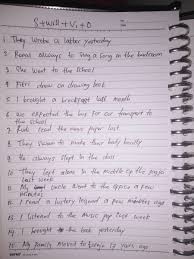 S + will + V1 + O
1. They wrote a latter yesterday
2. Roma always to sing a song in the bathroom
3. She went to the school
4. Fitri draw on drawing book
5. I brought a breakfast last month
6. We expected the bus for our transport to
the school
7. read the news paper last
8. They swam to make their body healty
9. He always slept in the class
10. They last alarm in the middle of the
last week
11. My uncle went to the office a few
12. I read a history legend a few minutes ago
13. I listened to the music pop last week
14. I brought the book yesterday
15. My family moved to 17 years ago